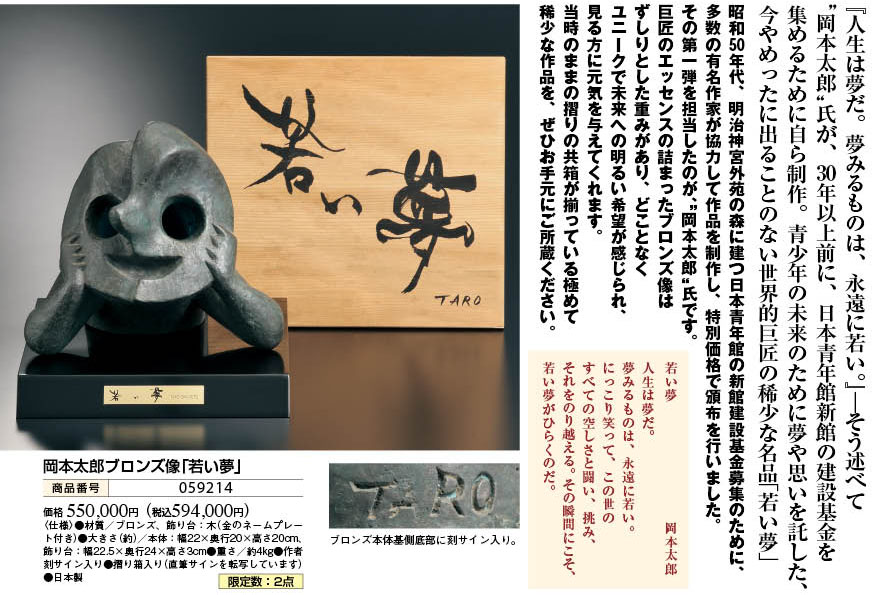 『人生は夢だ。夢みるものは、永遠に若い。』―そう述べて
”岡本太郎“氏が、30年以上前に、日本青年館新館の建設基金を
集めるために自ら制作。青少年の未来のために夢や思いを託した、
今やめったに出ることのない世界的巨匠の稀少な名品「若い夢」
昭和50年代、明治神宮外苑の森に建つ日本青年館の新館建設基金募集のために、
多数の有名作家が協力して作品を制作し、特別価格で頒布を行いました。
その第一弾を担当したのが、”岡本太郎“氏です。
巨匠のエッセンスの詰まったブロンズ像は
ずしりとした重みがあり、どことなく
ユニークで未来への明るい希望が感じられ、
見る方に元気を与えてくれます。
当時のままの摺りの共箱が揃っている極めて
稀少な作品を、ぜひお手元にご所蔵ください。
若い夢 岡本太郎
人生は夢だ。
夢みるものは、永遠に若い。
にっこり笑って、この世の
すべての空しさと闘い、挑み、
それをのり越える。その瞬間にこそ、
若い夢がひらくのだ。
若い夢
TARO
若い夢
岡本太郎ブロンズ像「若い夢」
商品番号 059214
価格 550,000円（税込594,000円）
〈仕様〉●材質／ブロンズ、飾り台：木（金のネームプレー
ト付き）●大きさ（約）／本体：幅22×奥行20×高さ20cm、
飾り台：幅22.5×奥行24×高さ3cm●重さ／約4kg●作者
刻サイン入り●摺り箱入り（直筆サインを転写しています）
●日本製
限定数：2点
TARO
ブロンズ本体基側底部に刻サイン入り。